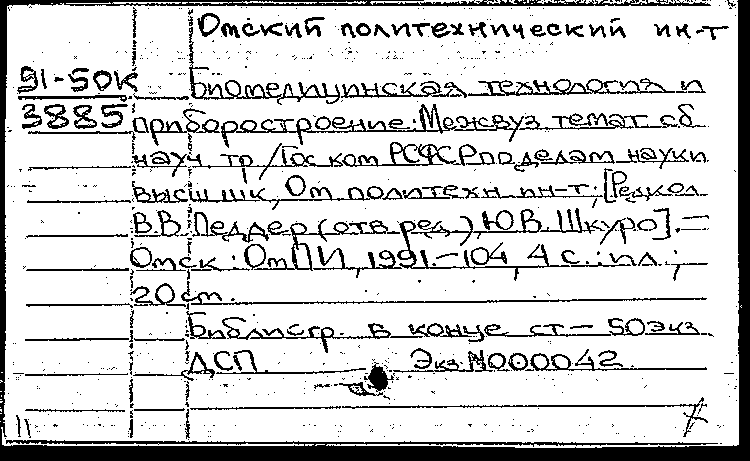 Омский политехнический ин-т
91-50К
3885
Биомедицинская технология и
приборостроение: Межвуз. темат. сб.
науч. тр. / Гос. ком. РСФСР по делам науки и
высш. шк., Ом. политехн. ин-т; [Редкол.:
В.В. Педдер (отв. ред.), Ю.В. Шкуро]. –
Омск: ОмПИ, 1991. – 104, 4 с.: ил.;
20 см.
Библиогр. в конце ст. – 50 экз.
ДСП. Экз. N000042.
11